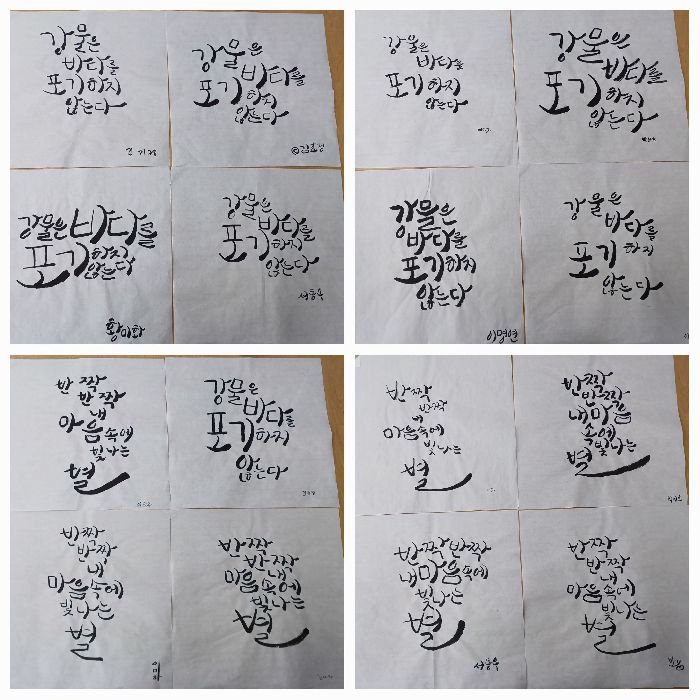 강물은
바다를
포기하지
않는다
강물은
바다를
포기하지
않는다
강물은 바다를
포기하지
않는다
강물은
바다를
포기하지
않는다
서동욱
강물은
바다를
포기하지
않는다
강물은
바다를
포기하지
않는다
강물은
바다를
포기하지
않는다
이명연
강물은
바다를
포기하지
않는다
반짝
반짝
내
마음속에
빛나는
별
강물은
바다를
포기하지
않는다
반짝
반짝
내
마음속에
빛나는
별
반짝
반짝
내
마음속에
빛나는
별
반짝
반짝
내
마음속에
빛나는
별
반짝
반짝
내마음
속에
빛나는
별
반짝반짝
내마음속에
빛나는
별
서동욱
반짝
반짝
내
마음속에
빛나는
별